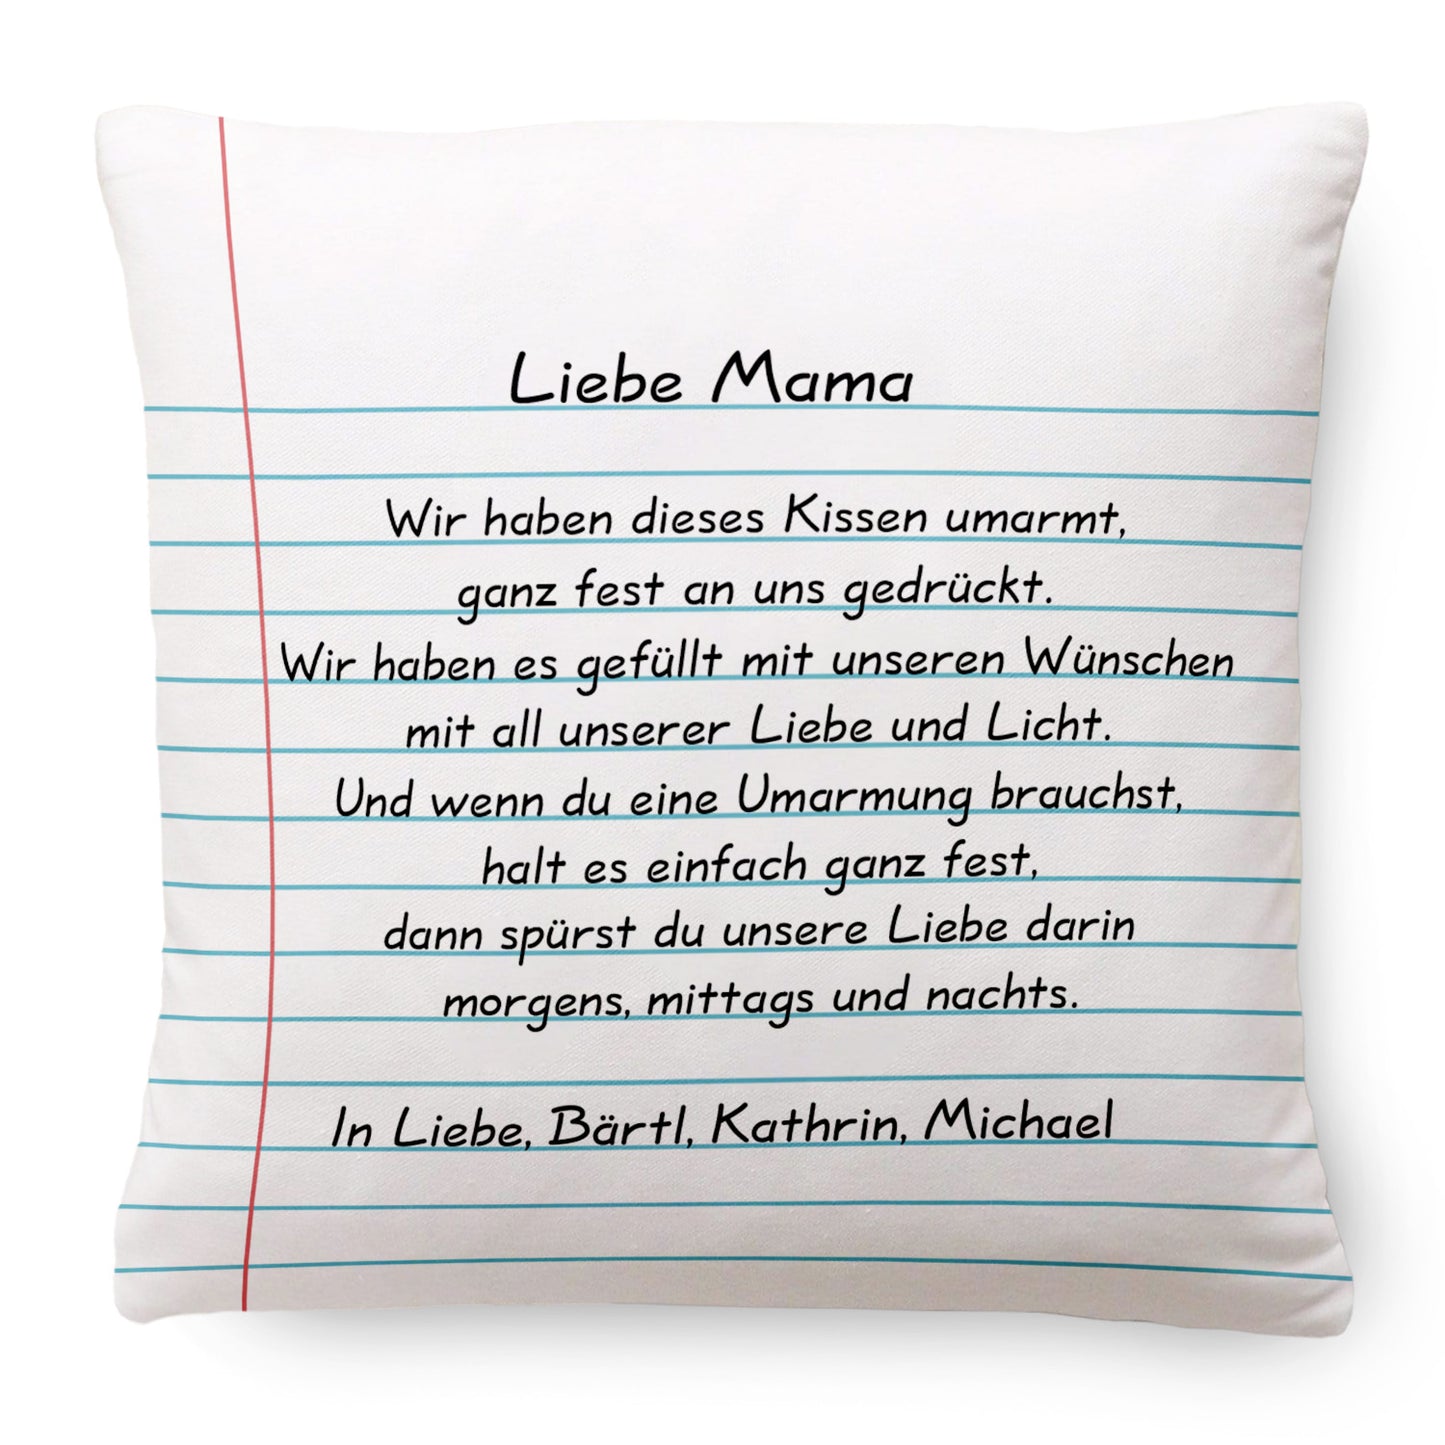 Liebe Mama
Wir haben dieses Kissen umarmt,
ganz fest an uns gedrückt.
Wir haben es gefüllt mit unseren Wünschen
mit all unserer Liebe und Licht.
Und wenn du eine Umarmung brauchst,
halt es einfach ganz fest,
dann spürst du unsere Liebe darin
morgens, mittags und nachts.
In Liebe, Bärtl, Kathrin, Michael